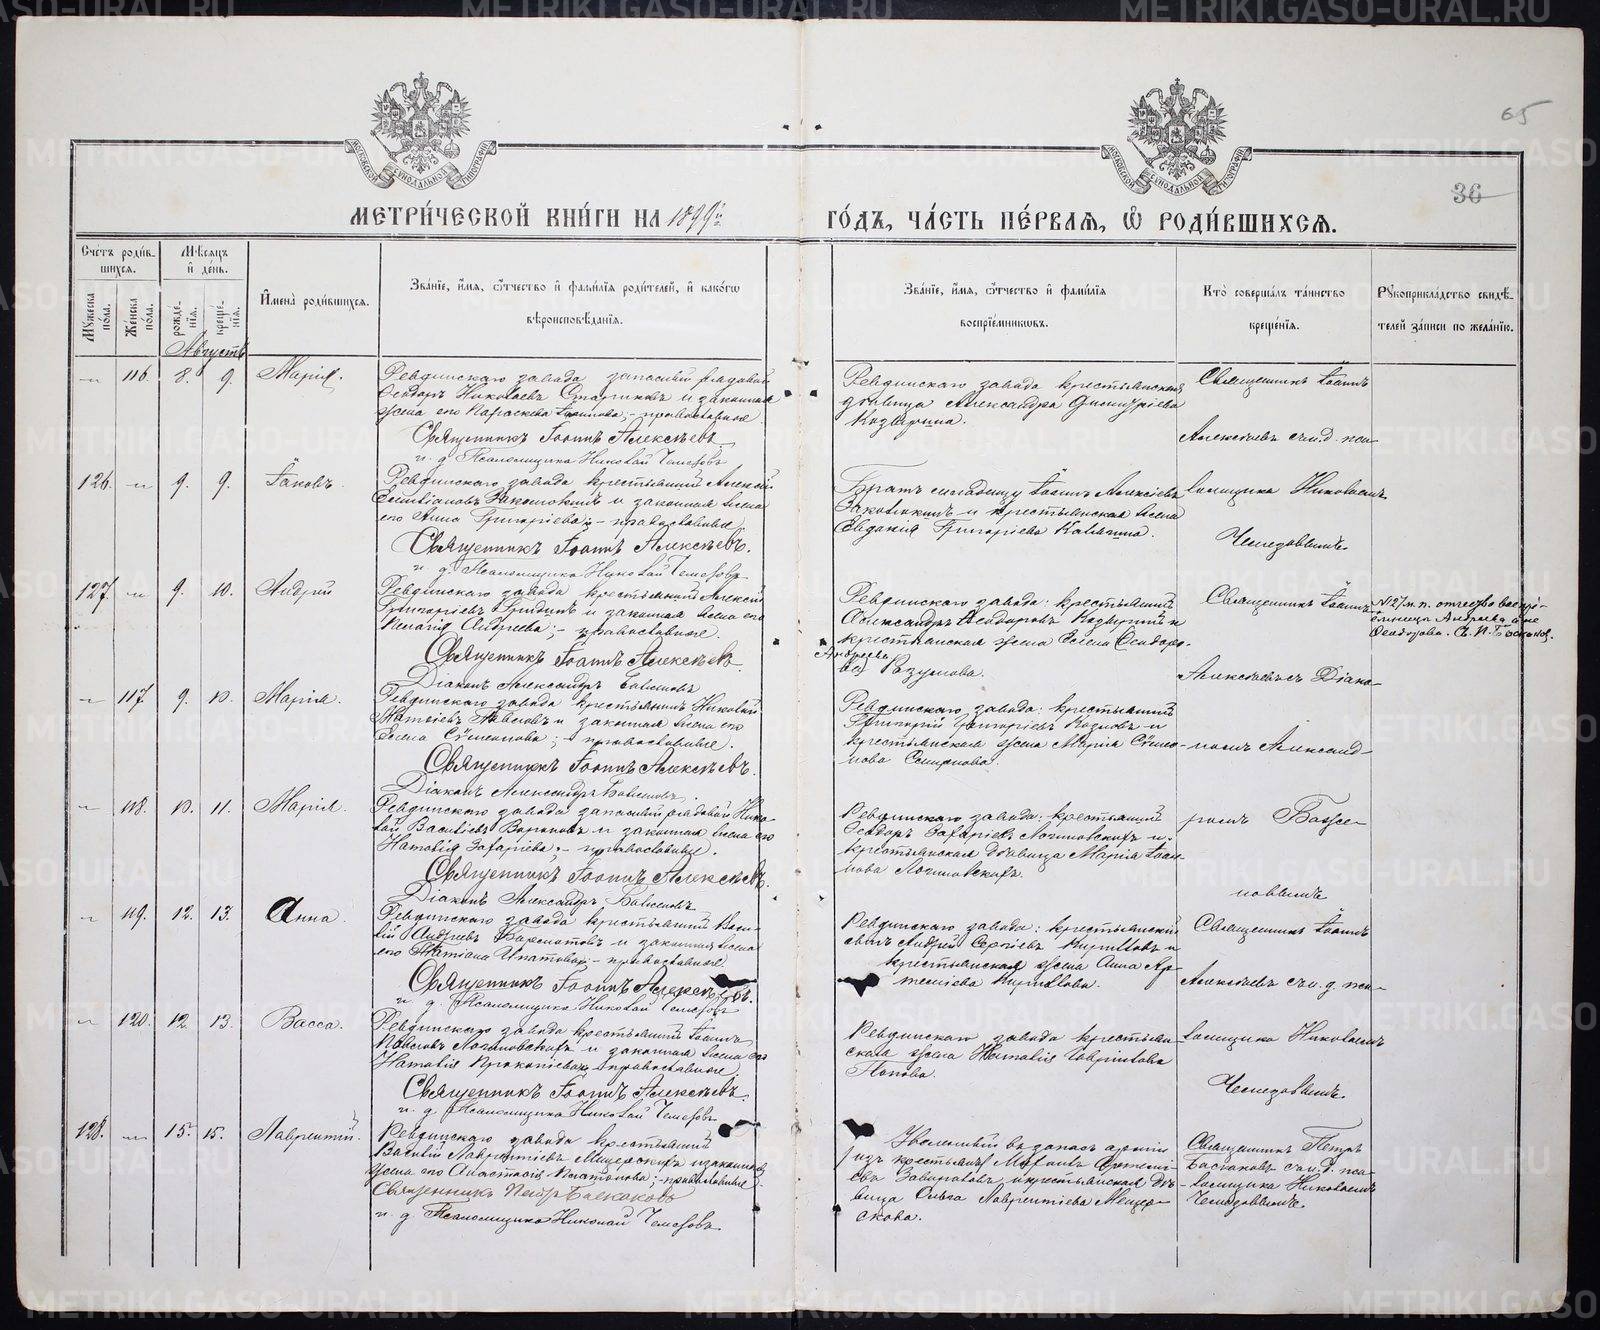 65
36
МЕТРИ́ЧЕСКОЙ КНИ́ГИ НА 1899й
ГО́ДЪ, ЧА́СТЬ ПЕ́РВАЯ, Ѡ РОДИ́ВШИХСЯ.
Сче́тъ роди́в-
шихся.
Мѣ́сяцъ
и҆ де́нь.
Мꙋ́жеска
по́ла.
Же́нска
по́ла.
рожде́-
нїя.
креще́-
нїя.
И҆мена̀ роди́вшихся.
Зва́нїе, и҆́мя, ѻ҆́тчество и҆ фами́лїя роди́телей, и҆ како́гѡ
вѣроисповѣ́данїя.
Зва́нїе, и҆́мя, ѻ҆́тчество и҆ фами́лїя
воспрїе́мникѡвъ.
Кто̀ соверша́лъ та́инство
креще́нїя.
Рꙋкоприкла́дство свидѣ́-
телей за́писи по жела́нїю.
Августъ
116. 8. 9. Марія.
Ревдинскаго завода запасный рядовой
Ѳеодоръ Николаевъ Стариковъ и законная
жена его Параскева Іоаннова; - православные
Священникъ Іоаннъ Алексѣевъ
и. д. Псаломщика Николай Чемезовъ
Ревдинскаго завода крестьянская
дѣвица Александра Димитріева
Козырина.
Священникъ Іоаннъ
Алексѣевъ съ и. д. пса-
126. 9. 9. Іаковъ.
Ревдинскаго завода крестьянинъ Алексѣй
и законная жена
его Анна Григоріева; - православные
Священникъ Іоаннъ Алексѣевъ.
и. д. Псаломщика Николай Чемезовъ
Братъ младенцу Іоаннъ Алексіевъ
и крестьянская жена
Евдокія Григоріева
ломщика Николаемъ
Чемезовымъ.
127. 9. 10. Андрей
Ревдинскаго завода крестьянинъ Алексѣй
Григоріевъ и законная жена его
Пелагія Андреева; - православные.
Священникъ Іоаннъ Алексѣевъ
Діаконъ Александръ Баженовъ
Ревдинскаго завода: крестьянинъ
Александръ Ѳеодоровъ Козыринъ и
крестьянская жена Елена Ѳеодоро-
Андреева
ва) Разумова.
Священникъ Іоаннъ
Алексѣевъ съ Діако-
№127 м. п. отчество воспрі-
емницы Андреева а не
Ѳеодорова. С. П. Баскоковъ.
117. 9. 10. Марія.
Ревдинскаго завода крестьянинъ Николай
Матвіевъ и законная жена его
Елена Сѵмеонова; - православные.
Священникъ Іоаннъ Алексѣевъ.
Діаконъ Александръ Баженовъ
Ревдинскаго завода: крестьянинъ
Григорій Григоріевъ Козловъ и
крестьянская жена Марія Сѵмео-
нова Смирнова.
номъ Александ-
118. 10. 11. Марія.
Ревдинскаго завода запасный рядовой Нико-
лай Василіевъ Вороновъ и законная жена его
Наталія Захаріева; - православные.
Священникъ Іоаннъ Алексѣевъ.
Діаконъ Александръ Баженовъ
Ревдинскаго завода: крестьянинъ
Ѳеодоръ Захаріевъ Логиновскихъ и
крестьянская дѣвица Марія Іоан-
нова Логиновскихъ.
ромъ Баже-
новымъ
119. 12. 13. Анна.
Ревдинскаго завода крестьянинъ Васи-
лій Андреевъ и законная жена
его Татіана Ипатова; - православные
Священникъ Іоаннъ Алексѣевъ.
и. д. Псаломщика Николай Чемезовъ
Ревдинскаго завода: крестьянскій
сынъ Андрей Сергіевъ и
крестьянская жена Анна Ар-
темiева
Священникъ Іоаннъ
Алексѣевъ съ и. д. пса-
120. 12. 13. Васса.
Ревдинскаго завода крестьянинъ Іоаннъ
Павловъ Логиновскихъ и законная жена его
Наталія Прокопіева; - православные
Священникъ Іоаннъ Алексѣевъ.
и. д. Псаломщика Николай Чемезовъ
Ревдинскаго завода крестьян-
ская жена Наталія Гавріилова
Попова.
ломщика Николаемъ
Чемезовымъ.
128. 15. 15. Лаврентій.
Ревдинскаго завода крестьянинъ
Василій Лаврентіевъ Мещерскихъ и законная
жена его Анастасія Платонова; - православные
Священникъ Петръ Баскоковъ
и. д. Псаломщика Николай Чемезовъ
Уволенный въ запасъ арміи
изъ крестьянъ Артемі-
евъ и крестьянская дѣ-
вица Ольга Лаврентіева Мещер-
скова.
Священникъ Петръ
Баскоковъ съ и. д. пса-
ломщика Николаемъ
Чемезовымъ.
METRIKI.GASO-URAL.RU